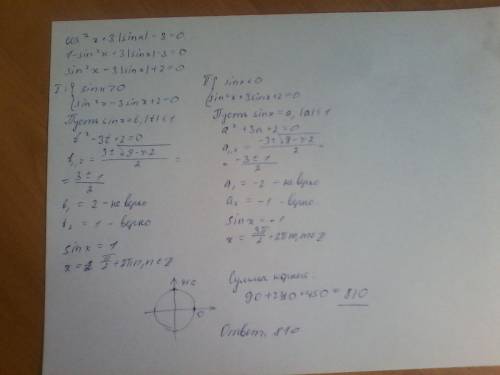 cos²x + 3|sinx| - 3 = 0
1 - sin²x + 3|sinx| - 3 = 0
sin²x - 3|sinx| + 2 = 0
I. { sinx ≥ 0
sin²x - 3sinx + 2 = 0
Пусть sinx = t, |t| ≤ 1
t² - 3t + 2 = 0
t₁,₂ = (3 ± √9 - 4·2)/2 =
= (3 ± 1)/2
t₁ = 2 - неверно
t₂ = 1 - верно
sinx = 1
x = π/2 + 2πn, n ∈ Z
II. { sinx < 0
sin²x + 3sinx + 2 = 0
Пусть sinx = a, |a| ≤ 1
a² + 3a + 2 = 0
a₁,₂ = (-3 ± √9 - 4·2)/2 =
= (-3 ± 1)/2
a₁ = -2 - неверно
a₂ = -1 - верно
sinx = -1
x = 3π/2 + 2πm, m ∈ Z
0
Сумма корней:
90 + 270 + 450 = 810
Ответ: 810